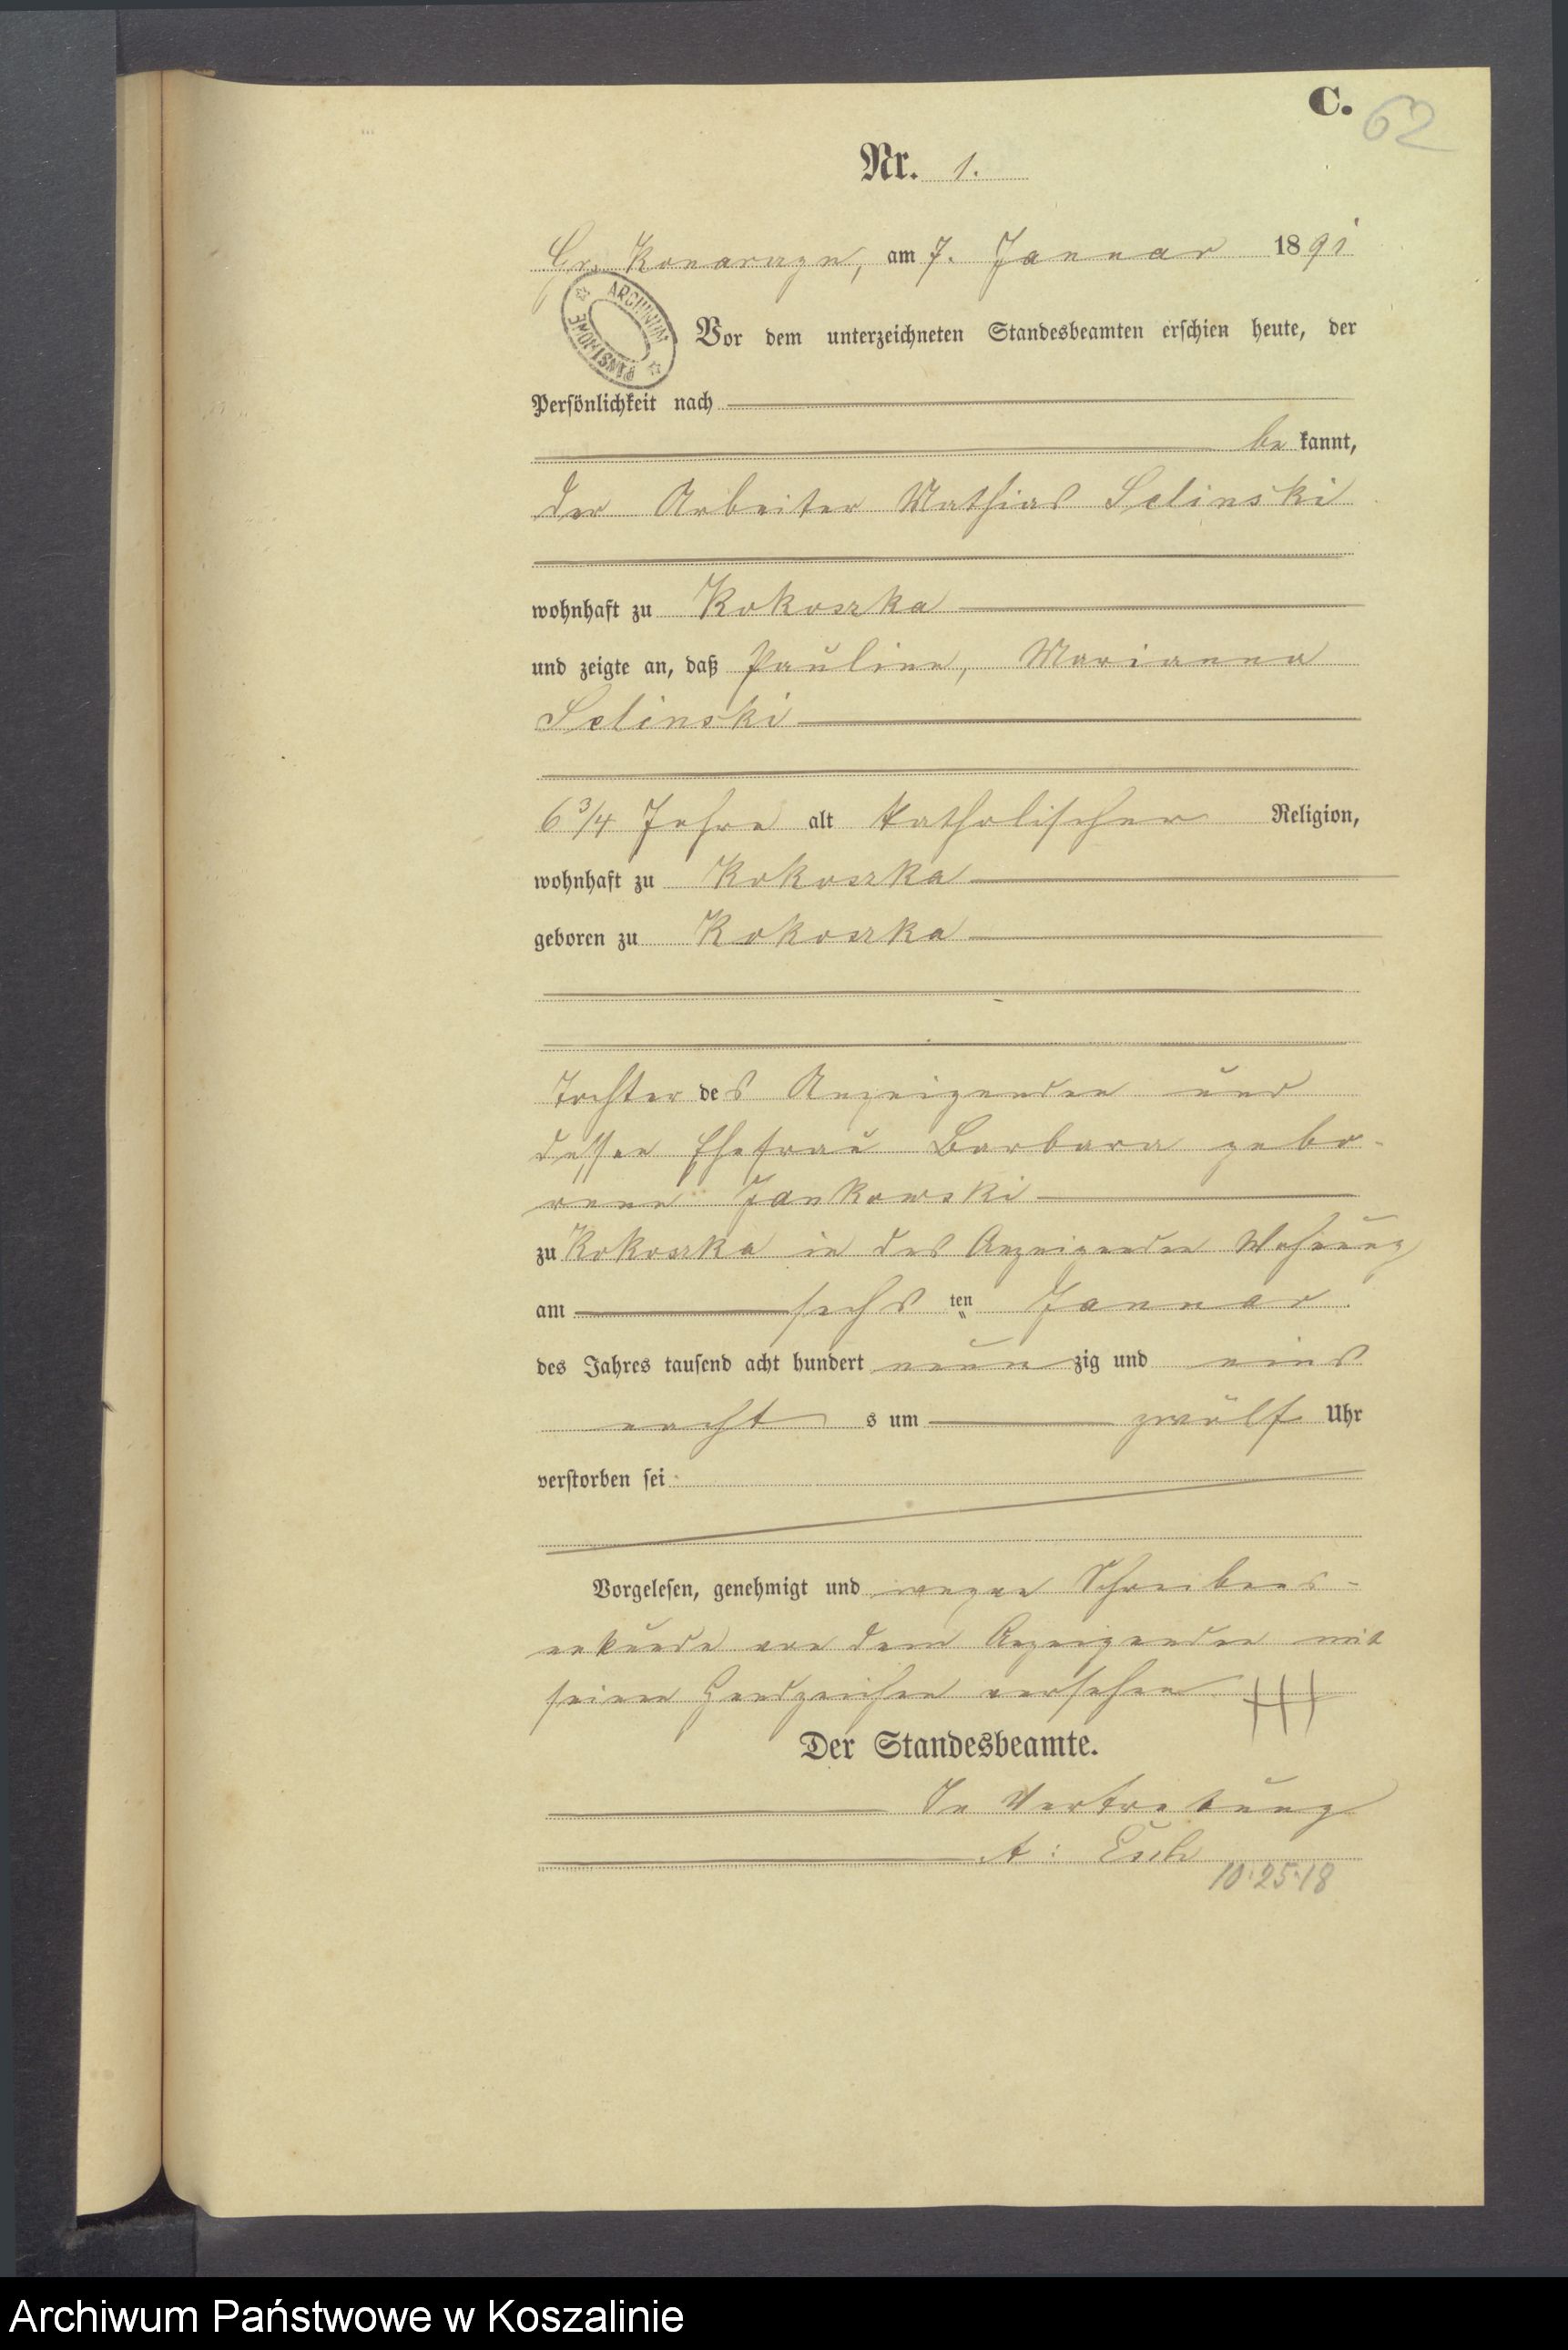 C.
62
Nr. 1.
Gr. Konarczyn, am 7. Januar 1891
ARCHIWUM PAŃSTWOWE
Vor dem unterzeichneten Standesbeamten erschien heute, der
Persönlichkeit nach
be kannt,
der Arbeiter Mathias Selinski
wohnhaft zu Kokoszka
und zeigte an, daß Pauline, Marianna
Selinski
6 3/4 Jahre alt katholischer Religion,
wohnhaft zu Kokoszka
geboren zu Kokoszka
Tochter des Anzeigenden und
dessen Ehefrau Barbara gebo-
rene Jankowski
zu Kokoszka in des Anzeigenden Wohnung
am sechs ten Januar
des Jahres tausend acht hundert neun zig und eins
nacht s um zwölf Uhr
verstorben sei
Vorgelesen, genehmigt und wegen Schreibens-
unkunde von dem Anzeigenden mit
seinen Handzeichen versehen +++
Der Standesbeamte.
In Vertretung
A: Esch
10·25·18
Archiwum Państwowe w Koszalinie